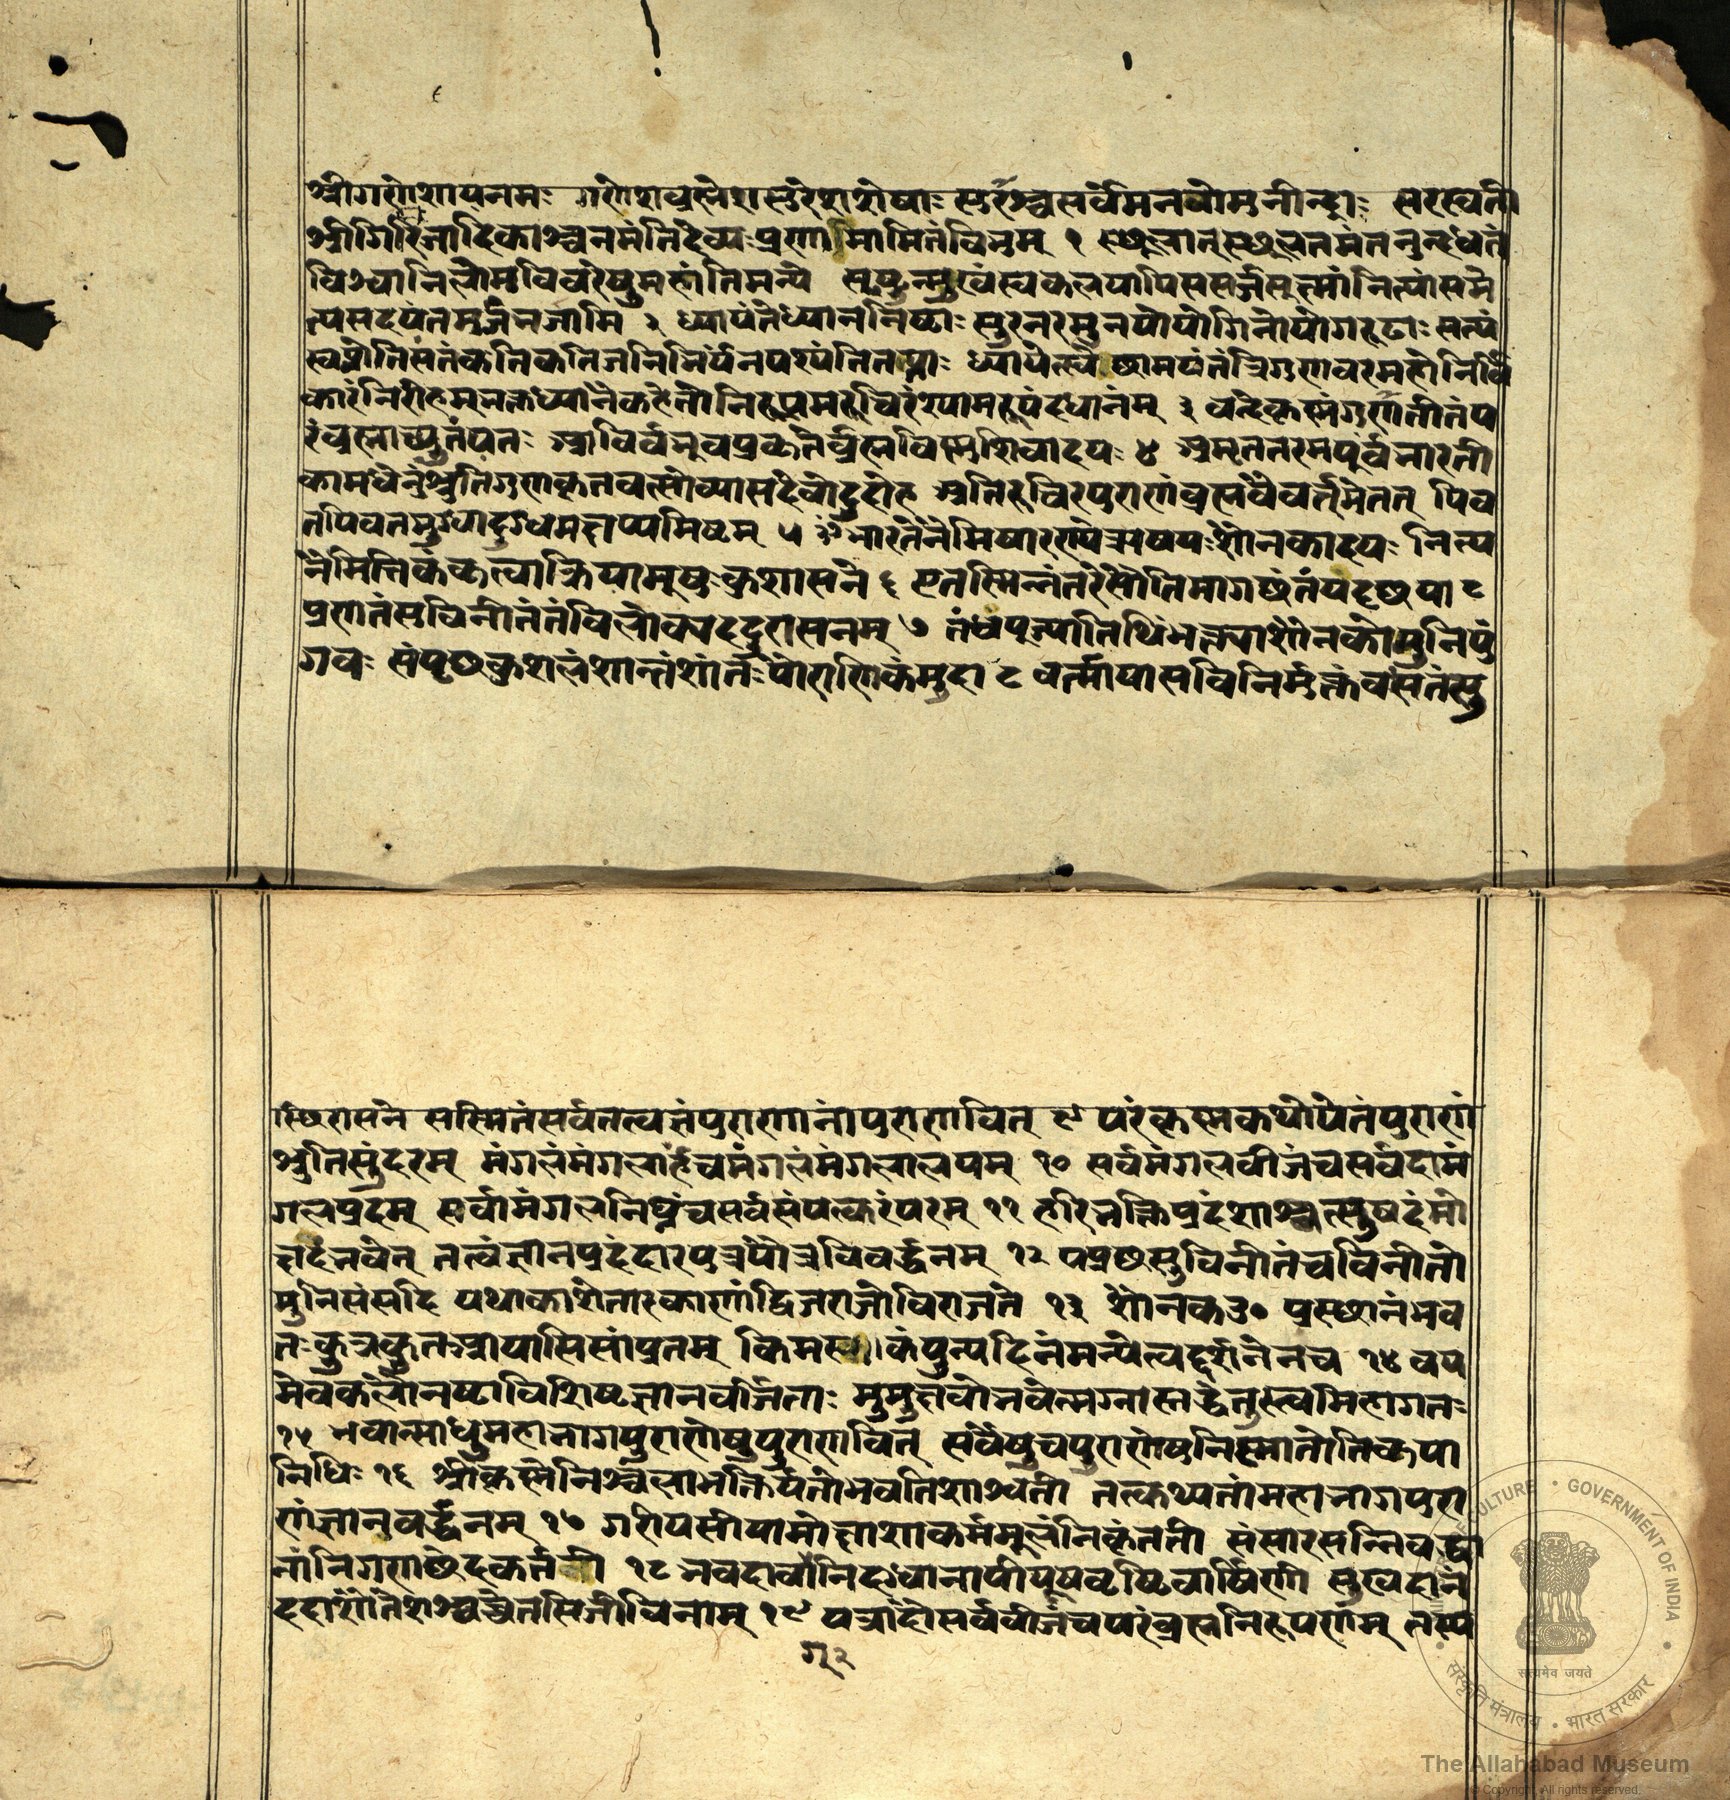 श्रीगणेशायनमः गणेशवह्मेशसुरेशशेषाः सुराश्चसर्वेमनवोमुनीन्द्राः सरस्वती
श्रीगिरिजादिकाश्चनमंतिदेव्यःप्रणमामितंविभुम् १ स्थूलातस्थूलतमंतनुन्दधतं
विश्वानिलोमविवरेषुमहांतिमन्ये सृष्ट्युन्मुखंस्वकलयापिससर्जसूक्ष्मांनित्यांसमे
त्यसदयंतमजंभजामि २ ध्यायंतेध्याननिष्ठाः सुरनरमुनयोयोगिनोयोगरूढाः सत्यं
स्वप्नेतिसंतंकतिकतिजनिभिर्यंनपश्यंतितप्त्वा ध्यायेत्स्वेच्छामयंतंत्रिगुणवरमहोनिर्वि
कारंनिरीहम्भक्तध्यानैकहेतोनिरूपमरुचिरंश्यामरूपंदधानम् ३ वन्देकृष्णंगुणातीतंप
रंवह्माच्युतंयतः आविर्वभूवप्रकृतर्व्रह्मविष्णुशिवादयः ४ अमृततरमपूर्वंभारती
कामधेनुंश्रुतिगुणकृतवत्सोव्यासदेवोदुदोह अतिरुचिरपुराणंव्रह्मवैवर्तमेतत् पिव
तपिवतमुग्धादुग्धमक्षय्यमिष्टम् ५ ॐभारतेनैमिषारण्येऋषयःशौनकादयः नित्य
नैमित्तिकंकृत्वाक्रियामूषुःकुशासने ६ एतस्मिन्नंतरेसौतिमागछंतंयदृछया ८
प्रणतंसुविनीतंतंविलोक्यददुरासनम् ७ तंधपूज्यातिथिंभक्त्याशौनकोमुनिपुं
गवः संपृछकुशलंशान्तंशांतःपौराणिकंमुदा ८ वर्त्मायासविनिर्मुक्तंवसंतंसु
स्थिरासने सस्मितंसर्वतत्वज्ञंपुराणानांपुराणवित् ९ परंकृष्णकथोपेतंपुराणं
श्रुतिसुंदरम् मंगलंमंगलार्हंचमंगलंमंगलालयम् १० सर्वमंगलवीजंचसर्वदामं
गलप्रदम् सर्वामंगलनिघ्नंचसर्वसंपत्करंपरम् ११ हरिभक्तिप्रदंशाश्वत्सुषदंमो
क्षदंभवेत् तत्वंज्ञानप्रदंदारपुत्रपौत्रविवर्द्धनम् १२ पप्रछसुविनीतंचविनीतो
मुनिसंसदि यथाकाशेतारकाणांद्विजराजोविराजते १३ शौनकउ० प्रस्थानंभव
तःकुत्रकुतआयासिसांप्रतम् किमस्माकंपुन्यदिनंमन्येत्वद्दर्शनेनच १४ वय
मेवकलौनष्टाविशिष्टज्ञानवर्जिताः मुमुक्षवोभवेमग्नास्तद्धेतुस्त्वमिहागतः
१५ भवान्साधुमहाभागपुराणेषुपुराणवित् सर्वेषुचपुराणेषुनिष्णातोतिकृपा
निधिः १६ श्रीकृष्णेनिश्चलाभक्तिर्यतोभवतिशाश्वती तत्कथ्यतांमहाभागपुरा
णंज्ञानुवर्द्धनम् १७ गरीयसीयामोक्षाशाकर्ममूलंनिकृंतती संसारसन्निवद्धा
नांनिगणछेदकर्तनी १८ भवदावाग्निदग्धानांपीयूषवृष्टिवर्षिणी सुखदानं
ददाशौतेशश्वच्चेतसिजीविनाम् १९ यत्रादौसर्ववीजंचपरंव्रह्मनिरूपणम् तस्य
गु२
सत्यमेव जयते
GOVERNMENT OF INDIA
संस्कृति मंत्रालय • भारत सरकार
The Allahabad Museum
© Copyright. All rights reserved.